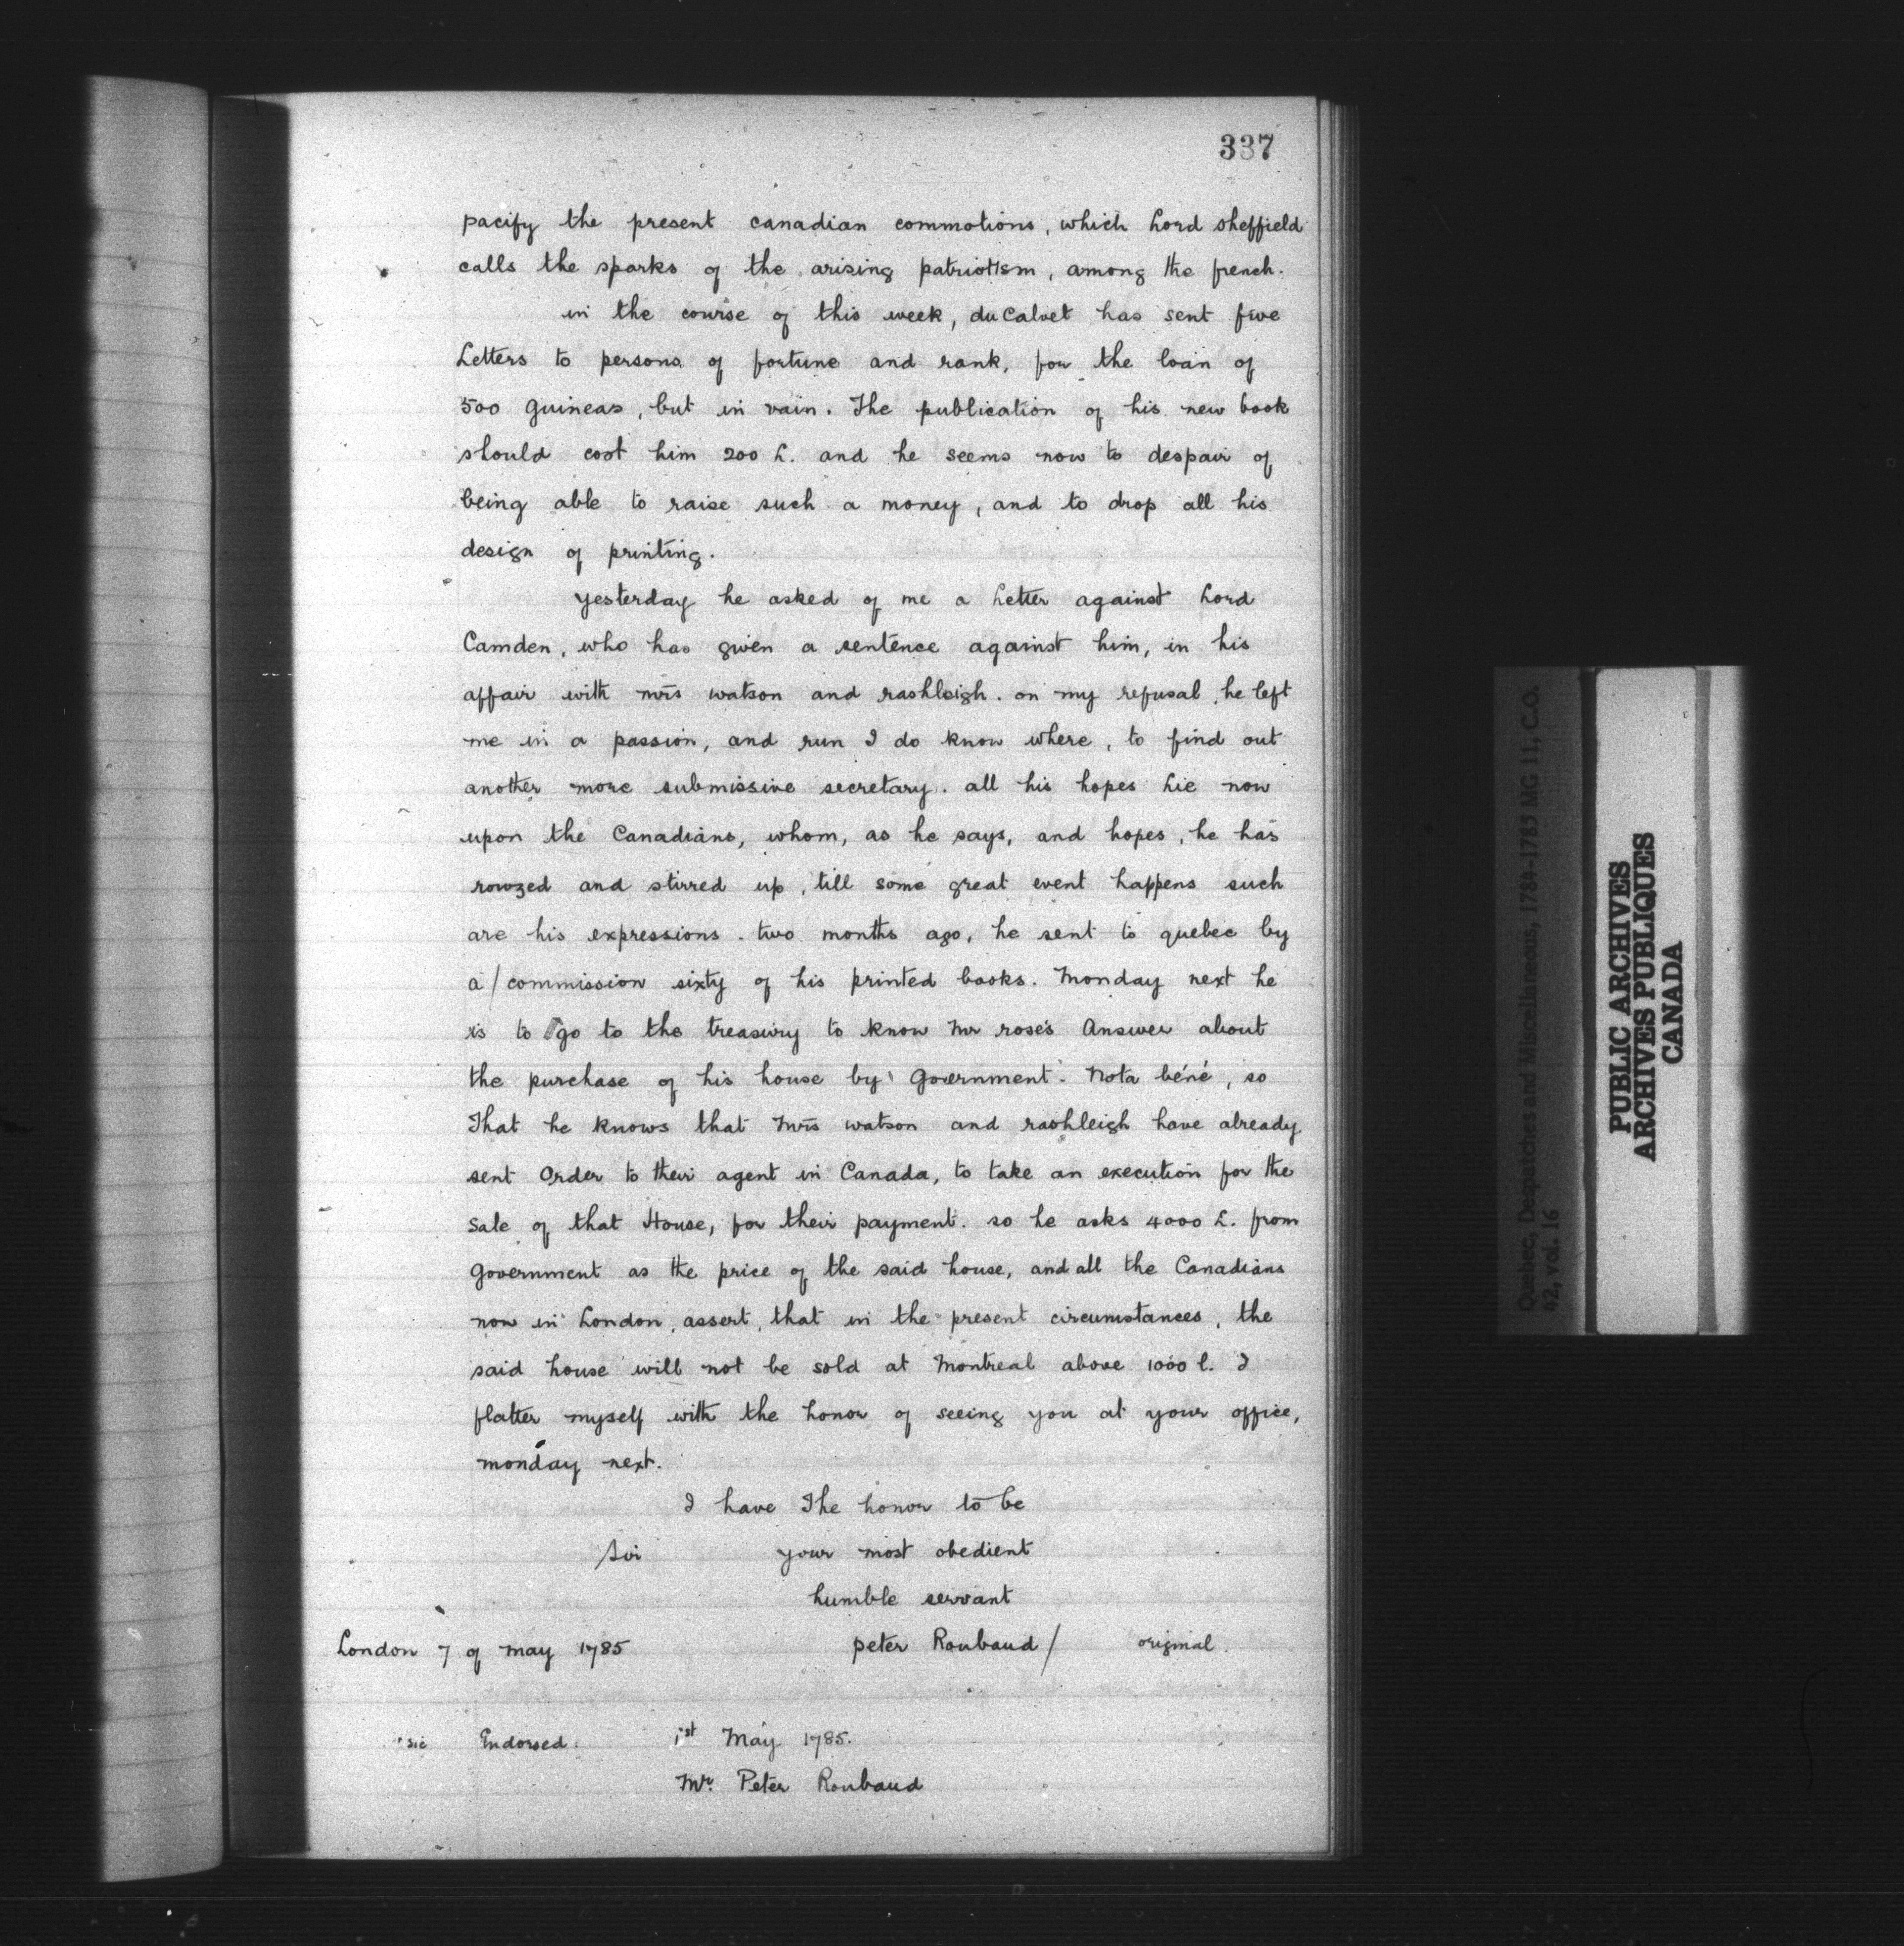 337
pacify the present canadian commotions, which Lord sheffield
calls the sparks of the arising patriotism, among the french.
in the course of this week, du Calvet has sent five
Letters to persons of fortune and rank, for the loan of
500 guineas, but in vain. The publication of his new book
should cost him 200 L. and he seems now to despair of
being able to raise such a money, and to drop all his
design of printing.
yesterday he asked of me a Letter against Lord
Camden, who has given a sentence against him, in his
affair with mrs watson and rashleigh. on my refusal, he left
me in a passion, and run I do know where, to find out
another more submissive secretary. all his hopes Lie now
upon the Canadians, whom, as he says, and hopes, he has
rowzed and stirred up, till some great event happens such
are his expressions. two months ago, he sent to quebec by
a/commission sixty of his printed books. Monday next he
is to go to the treasury to know Mr rose's Answer about
the purchase of his house by Government. Nota béné, so
That he knows that Mrs watson and rashleigh have already
sent Order to their agent in Canada, to take an execution for the
Sale of that House, for their payment. so he asks 4000 L. from
Government as the price of the said house, and all the Canadians
now in London, assert, that in the present circumstances, the
said house will not be sold at Montreal above 1000 l. I
flatter myself with the honor of seeing you at your office,
monday next.
I have The honor to be
Sir your most obedient
humble servant
London 7 of may 1785 peter Roubaud/ original.
sic Endorsed: 1st May 1785.
Mr. Peter Roubaud
Quebec, Despatches and Miscellaneous, 1784-1785 MG 11, C.O.
42, vol. 16
PUBLIC ARCHIVES
ARCHIVES PUBLIQUES
CANADA